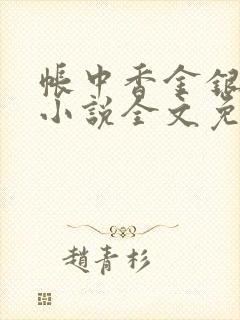 帳中香金銀
小說全文免
趙青杉